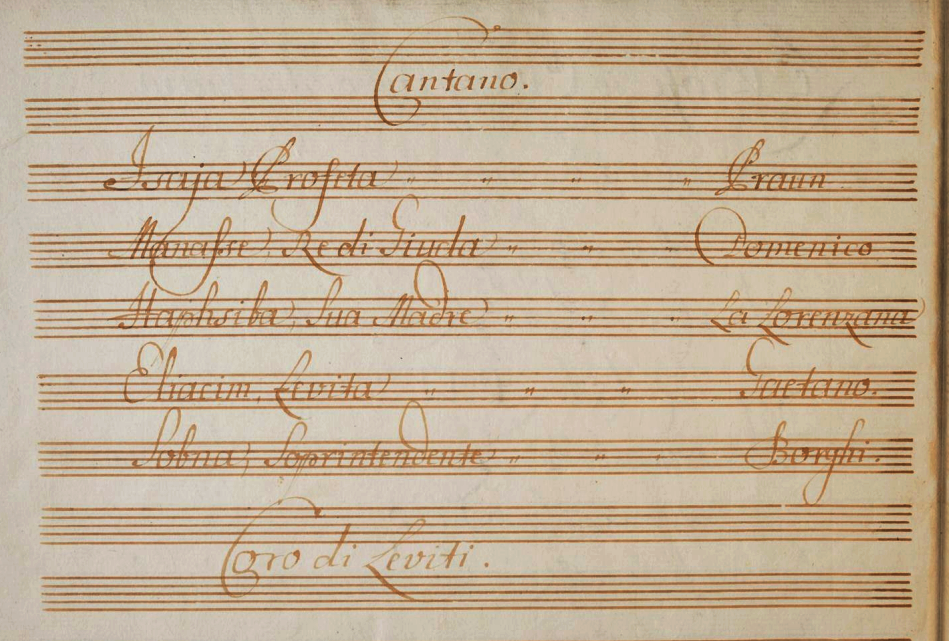 Cantano.
Isaja Profeta " " " " Praun
Manasse, Re di Giuda " " " Domenico
Haphsiba, Sua Madre " " " La Lorenzana
Eliacim, Levita " " " Gaetano.
Sobna, Soprintendente " " " Borghi.
Coro di Leviti.